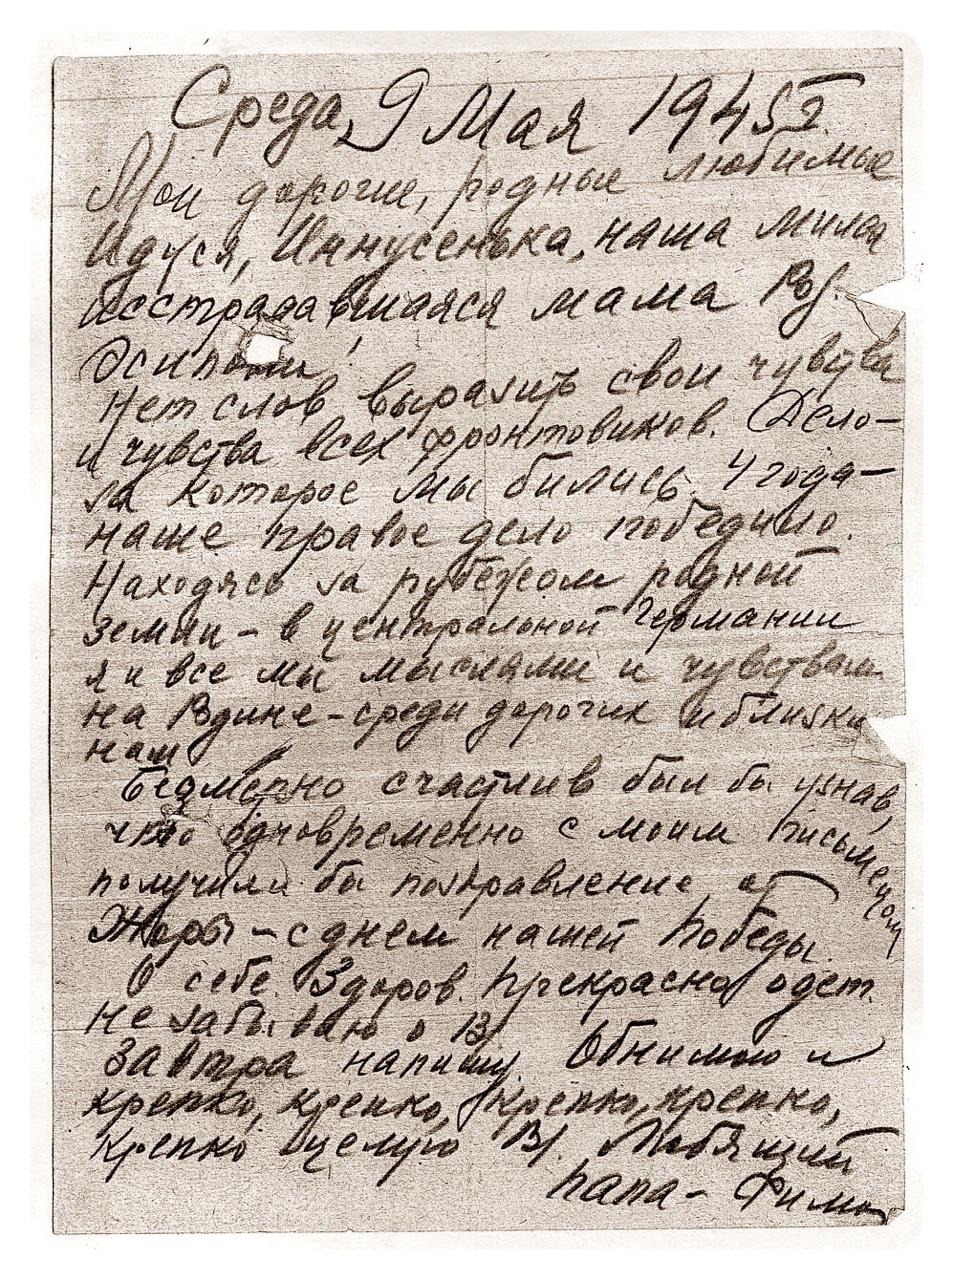 Среда, 9 Мая 1945 г.
Мои дорогие, родные любимые
Идуся, Иннусенька, наша милая
исстрадавшаяся мама
Нет слов выразить свои чувства
и чувства всех фронтовиков. Дело –
за которое мы бились 4 года –
наше правое дело победило.
Находясь за рубежом родной
земли – в центральной Германии
я и все мы мыслями и чувствам
на Рдине – среди дорогих и близки
нам
Безмерно счастлив был бы узнав,
что одновременно с моим письмецом
получили бы поздравление от
Жоры – с днем нашей Победы.
О себе. Здоров. Прекрасно одет.
Не забываю о В/
Завтра напишу. Обнимаю и
крепко, крепко, крепко, крепко,
крепко целую В/. Любящий
папа – Фима